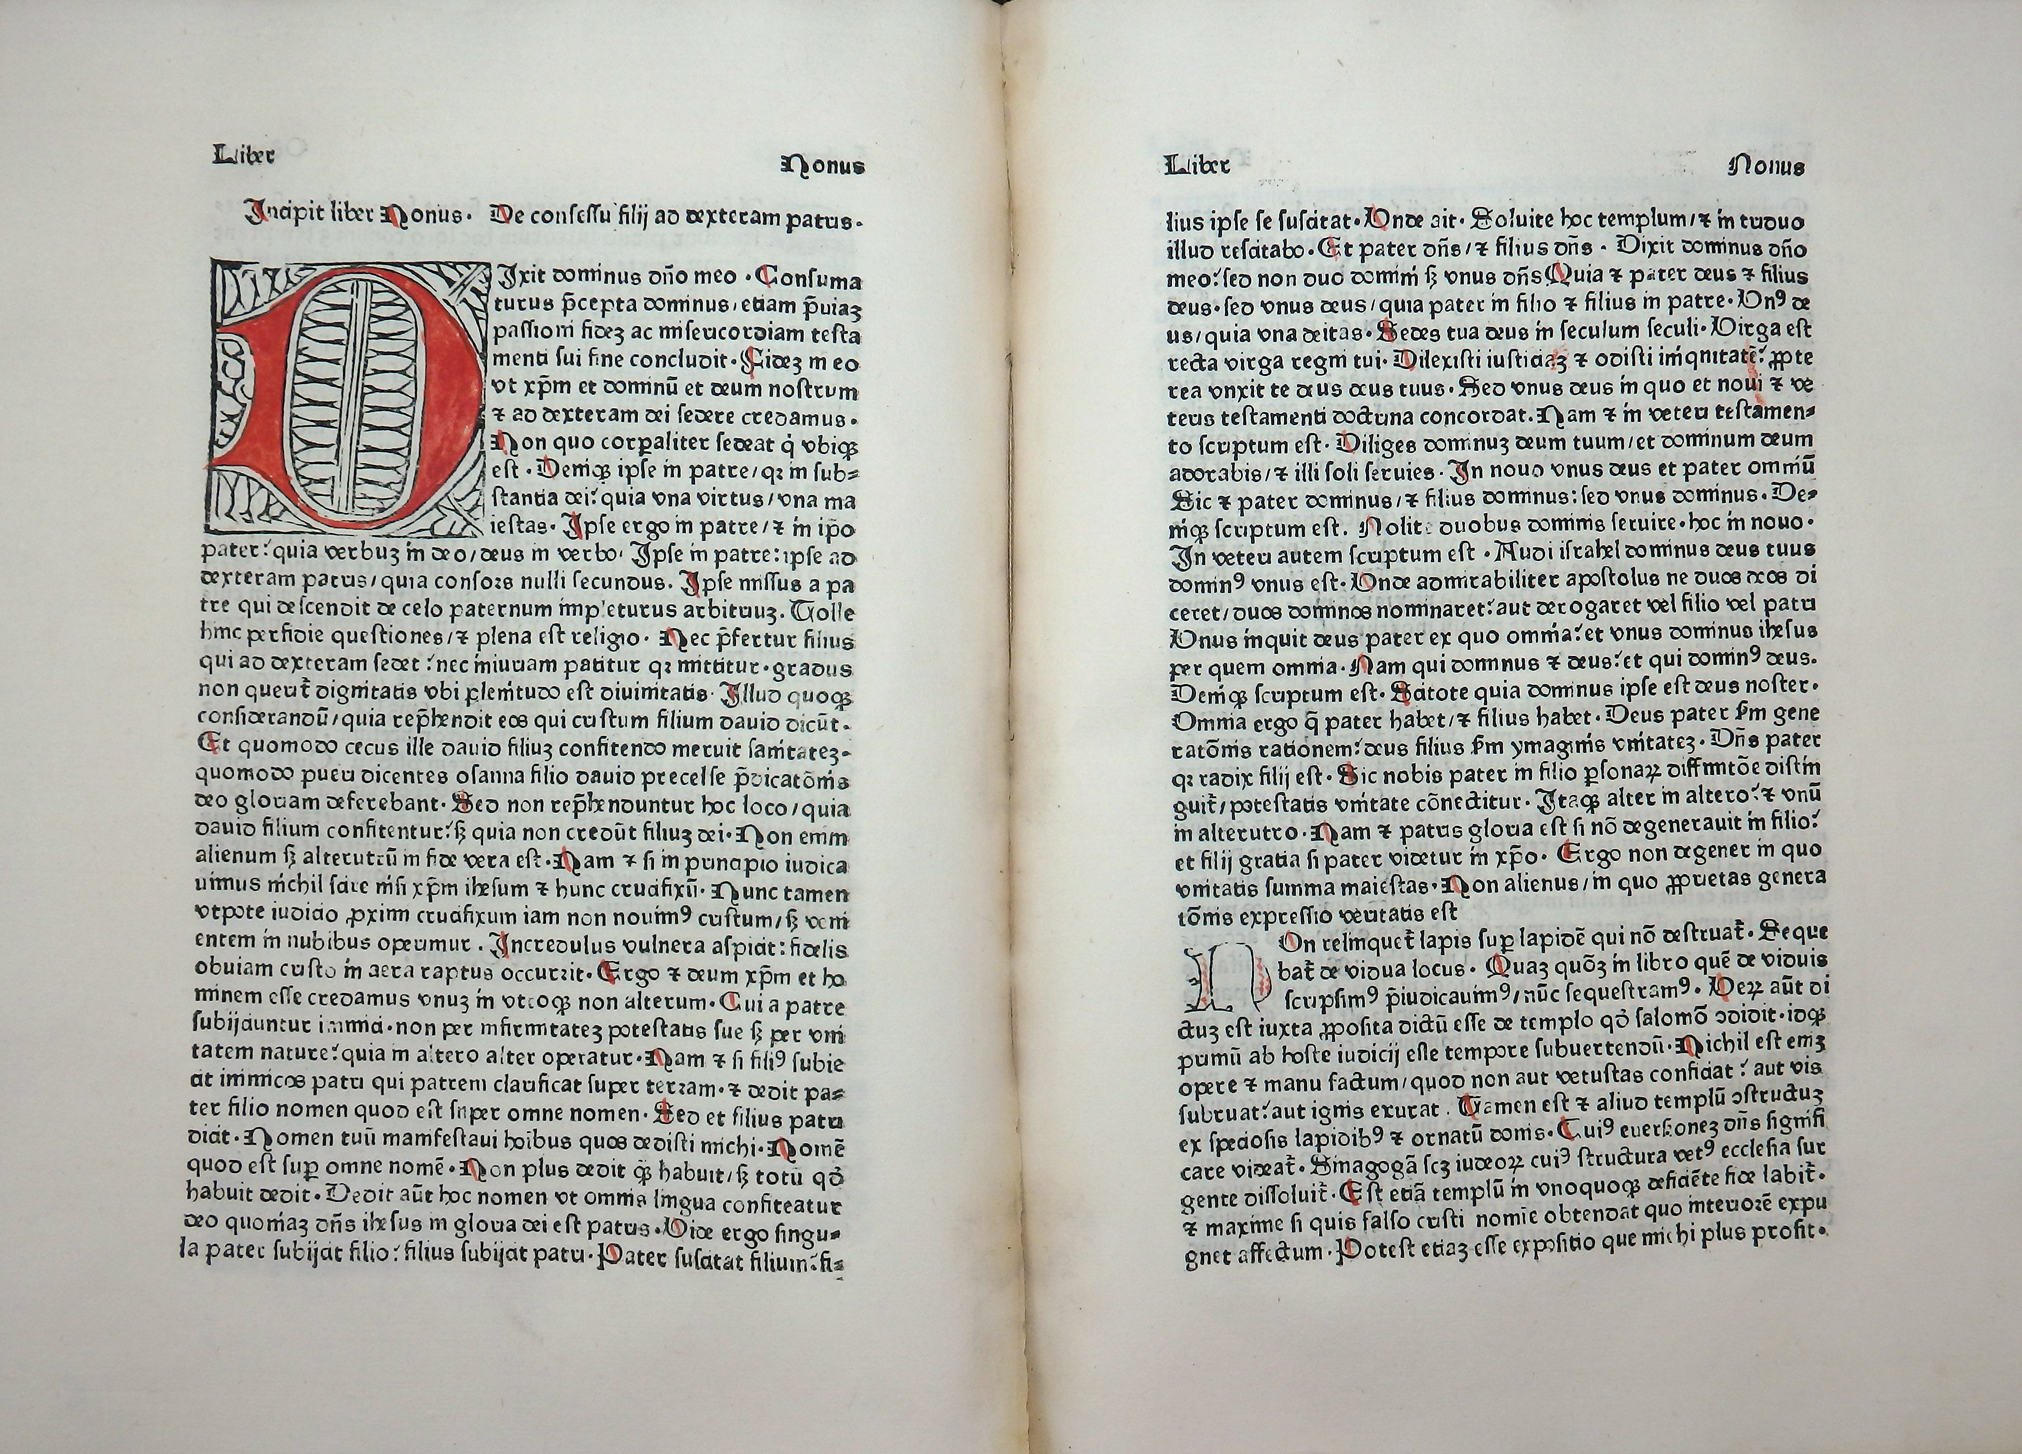 Liber Nonus
Incipit liber Nonus. De consessu filij ad dexteram patris.
DIxit dominus dño meo . Consuma
turus p̄cepta dominus/etiam p̄uiaꝫ
passioni fideꝫ ac misericordiam testa
menti sui fine concludit. Fideꝫ in eo
vt xp̄m et dominū et deum nostrum
⁊ ad dexteram dei sedere credamus.
Non quo corꝑaliter sedeat q̇ vbiqꝫ
est . Deniqꝫ ipse in patre/qꝛ in sub⸗
stantia dei: quia vna virtus/vna ma
iestas. Ipse ergo in patre/⁊ in ip̄o
pater: quia verbuꝫ in deo/deus in verbo. Ipse in patre: ipse ad
dexteram patris/quia consors nulli secundus. Ipse missus a pa
tre qui descendit de celo paternum impleturus arbitriuꝫ. Tolle
hinc perfidie questiones/⁊ plena est religio. Nec p̄fertur filius
qui ad dexteram sedet: nec iniuriam patitur qꝛ mittitur. gradus
non querit̄ dignitatis vbi plenitudo est diuinitatis. Illud quoqꝫ
considerandū/quia rep̄hendit eos qui cristum filium dauid dicūt.
Et quomodo cecus ille dauid filiuꝫ confitendo meruit sanitateꝫ.
quomodo pueri dicentes osanna filio dauid precelse p̄dicatōnis
deo gloriam deferebant. Sed non rep̄henduntur hoc loco/quia
dauid filium confitentur: sꝫ quia non credūt filiuꝫ dei. Non enim
alienum sꝫ alterutrū in fide vera est. Nam ⁊ si in principio iudica
uimus nichil scire nisi xp̄m ihesum ⁊ hunc crucifixū. Nunc tamen
vtpote iudicio ꝓximi crucifixum iam non nouimꝰ cristum/sꝫ veni
entem in nubibus operimur . Incredulus vulnera aspiciat: fidelis
obuiam cristo in aera raptus occurrit. Ergo ⁊ deum xp̄m et ho
minem esse credamus vnuꝫ in vtroqꝫ non alterum. Cui a patre
subijciuntur inimici. non per infirmitateꝫ potestatis sue sꝫ per vni
tatem nature: quia in altero alter operatur. Nam ⁊ si filiꝰ subie
cit inimicos patri qui patrem clarificat super terram. ⁊ dedit pa⸗
ter filio nomen quod est super omne nomen. Sed et filius patri
dicit. Nomen tuū manifestaui hoībus quos dedisti michi. Nomē
quod est suꝑ omne nomē. Non plus dedit qꝫ̄ habuit/sꝫ totū qd̄
habuit dedit. Dedit aūt hoc nomen vt omnis lingua confiteatur
deo quoniaꝫ dñs ihesus in gloria dei est patris. Vide ergo singu⸗
la pater subijcit filio: filius subijcit patri. Pater suscitat filium: fi⸗
Liber Nonus
lius ipse se suscitat. Vnde ait. Soluite hoc templum/⁊ in triduo
illud rescitabo. Et pater dñs/⁊ filius dñs . Dixit dominus dño
meo: sed non duo domini sꝫ vnus dñs Quia ⁊ pater deus ⁊ filius
deus. sed vnus deus/quia pater in filio ⁊ filius in patre. Vnꝰ de
us/quia vna deitas. Sedes tua deus in seculum seculi. Virga est
recta virga regni tui. Dilexisti iusticiaꝫ ⁊ odisti iniqnitatē: ꝓpte
rea vnxit te deus deus tuus. Sed vnus deus in quo et noui ⁊ ve
teris testamenti doctrina concordat. Nam ⁊ in veteri testamen⸗
to scriptum est. Diliges dominuꝫ deum tuum/et dominum deum
adorabis/⁊ illi soli seruies. In nouo vnus deus et pater omniū
Sic ⁊ pater dominus/⁊ filius dominus: sed vnus dominus. De⸗
niqꝫ scriptum est. Nolite duobus dominis seruire. hoc in nouo.
In veteri autem scriptum est . Audi israhel dominus deus tuus
dominꝰ vnus est. Vnde admirabiliter apostolus ne duos deos di
ceret/duos dominos nominaret: aut derogaret vel filio vel patri
Vnus inquit deus pater ex quo omnia: et vnus dominus ihesus
per quem omnia. Nam qui dominus ⁊ deus: et qui dominꝰ deus.
Deniqꝫ scriptum est. Scitote quia dominus ipse est deus noster.
Omnia ergo q̄ pater habet/⁊ filius habet. Deus pater s̄m gene
ratōnis rationem: deus filius s̄m ymaginis vnitateꝫ. Dñs pater
qꝛ radix filij est. Sic nobis pater in filio ꝑsonaꝝ diffinitōe distin
guit̄/potestatis vnitate cōnectitur. Itaqꝫ alter in altero: ⁊ vnū
in alterutro. Nam ⁊ patris gloria est si nō degenerauit in filio:
et filij gratia si pater videtur in xp̄o. Ergo non degener in quo
vnitatis summa maiestas. Non alienus/in quo ꝓprietas genera
tōnis expressio veritatis est
NOn relinquet̄ lapis suꝑ lapidē qui nō destruat̄. Seque
bat̄ de vidua locus. Quaꝫ quōꝫ in libro quē de viduis
scripsimꝰ p̄iudicauimꝰ/nūc sequestramꝰ. Veꝝ aūt di
ctuꝫ est iuxta ꝓposita dictū esse de templo qd̄ salomō ↄdidit. idqꝫ
primū ab hoste iudicij esse tempore subuertendū. Nichil est emꝫ
opere ⁊ manu factum/quod non aut vetustas conficiat: aut vis
subruat: aut ignis exurat . Tamen est ⁊ aliud templū ↄstructuꝫ
ex speciosis lapidibꝰ ⁊ ornatū donis. Cuiꝰ euersioneꝫ dñs signifi
care videat̄. Sinagogā scꝫ iudeoꝝ cuiꝰ structura vetꝰ ecclesia sur
gente dissoluit̄. Est etiā templū in vnoquoqꝫ deficiēte fide labit̄.
⁊ maxime si quis falso cristi nomīe obtendat quo interiorē expu
gnet affectum. Potest etiaꝫ esse expositio que michi plus profit.